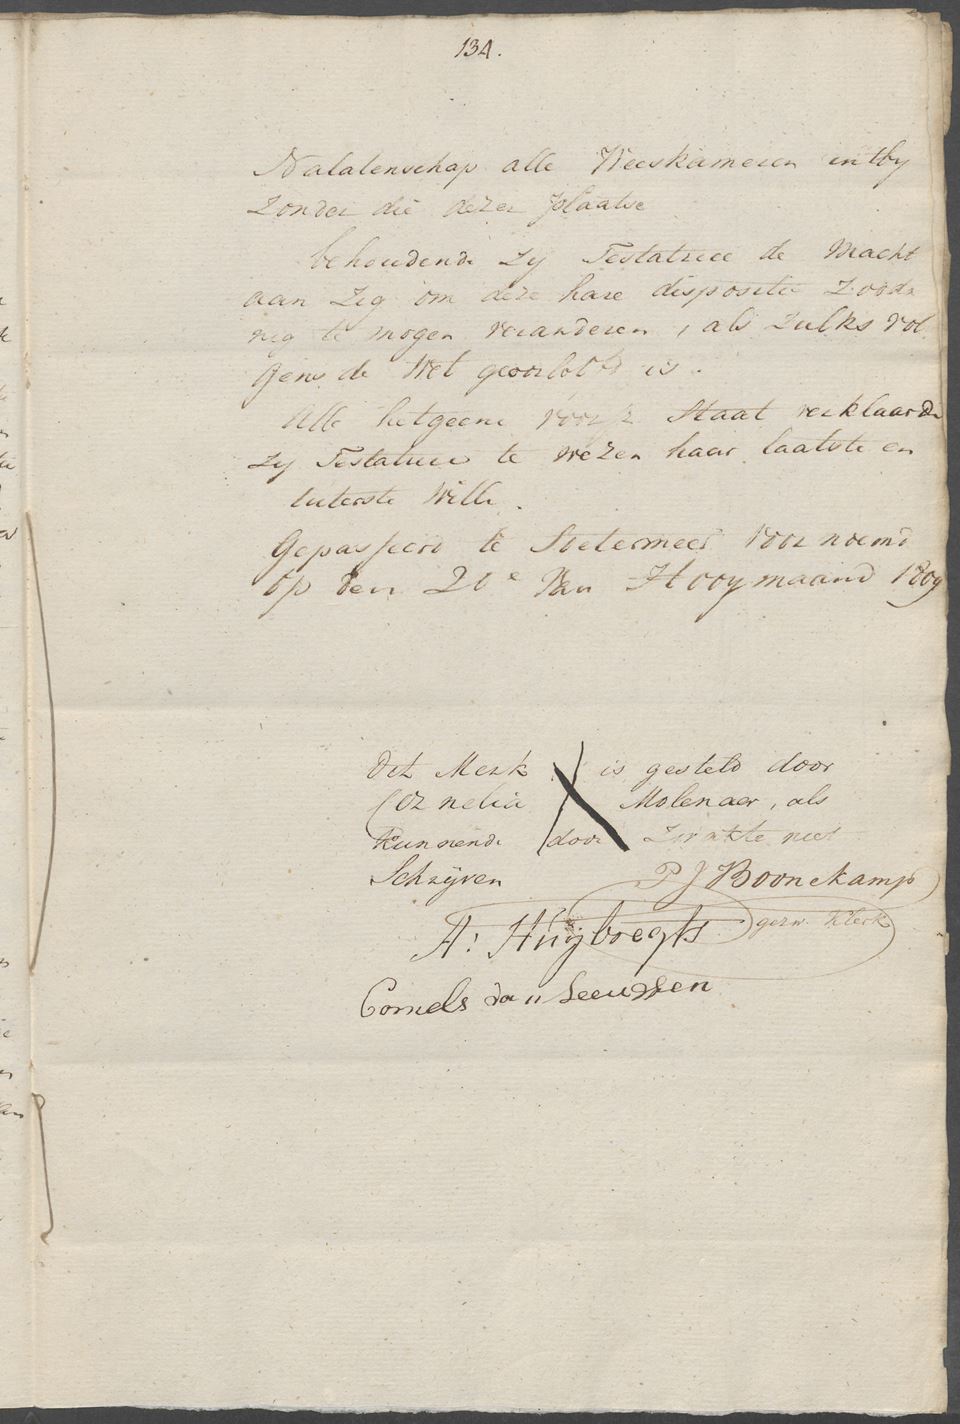 134.
Nalatenschap alle Weeskameren intby
zonder die dezer plaatse
behoudende Zy Testatrice de Macht
aan Zig om deze hare dispositie Zooda
nig te mogen veranderen, als Zulks vol
gens de Wet geoorlofd is.
Alle hetgeene voorsz Staat verklaarde
Zy Testatrice te wezen haar laatste en
uiterste Wille.
Gepasseerd te Soetermeer voornoemd
op den 20e van Hooymaand 1809
Dit Merk is gesteld door
Cornelia Molenaer, als
kunnende door Zwakte niet
Schrijven
P J Boonekamp
gezw. Klerk
A: Huijbregts
Cornels van Leeuwen